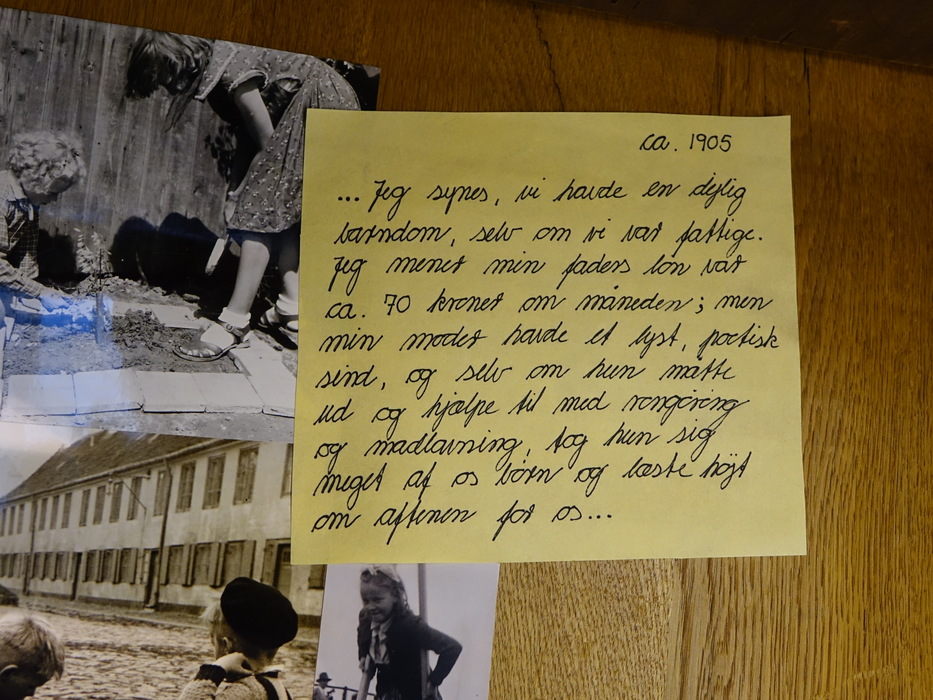 ca. 1905
... Jeg synes, vi havde en dejlig
barndom, selv om vi var fattige.
Jeg mener min faders løn var
ca. 70 kroner om måneden; men
min moder havde et lyst, poetisk
sind, og selv om hun måtte
ud og hjælpe til med rengøring
og madlavning, tog hun sig
meget af os børn og læste højt
om aftenen for os...